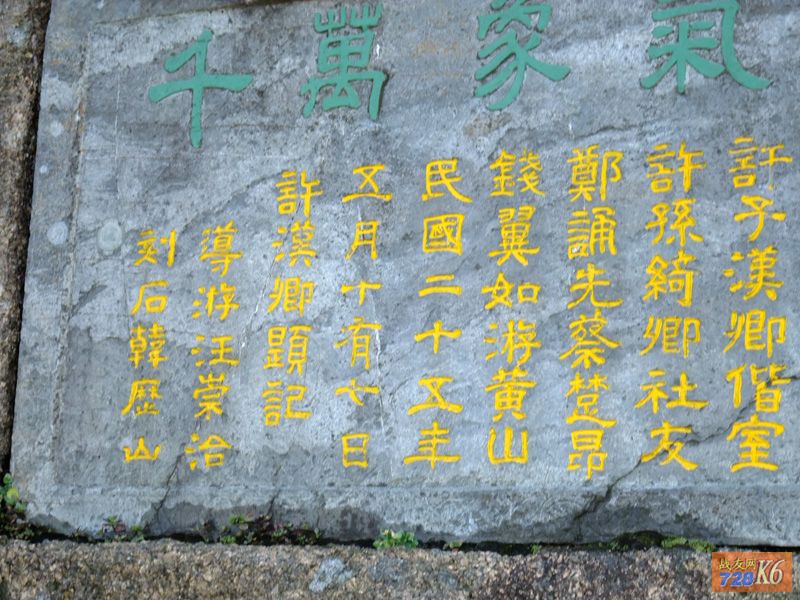 氣象萬千
許子漢卿偕室
許孫綺卿社友
鄭誦先蔡楚昂
錢翼如游黃山
民國二十五年
五月十有七日
許漢卿題記
導游汪崇治
刻石韓歷山
战友网
728K6